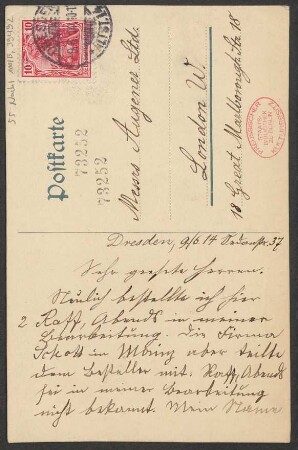 55 Nachl. 100/B, 39492
10 10
Postkarte
73252
73252
Messrs Augener Ltd.
London W.
18 Great Marlborough Str 18
Dresden, 9/6.14 Sedanstr. 37
Sehr geehrte Herren.
Neulich bestellte ich hier
2 Raff, Abends in meiner
Bearbeitung. Die Firma
Schott in Mainz aber teilte
dem Besteller mit: Raff, Abends
sei in meiner Bearbeitung
nicht bekannt. Mein Name